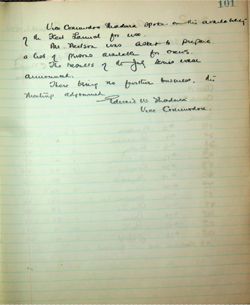 101
Vice Commodore Thadure spoke on the availability
of the Keel Launch for use.
Mr. Nelson was asked to prepare
a list of persons available for crews.
The results of the July series were
announced.
There being no further business, the
meeting adjourned.
Edwin W.
Vice Commodore.